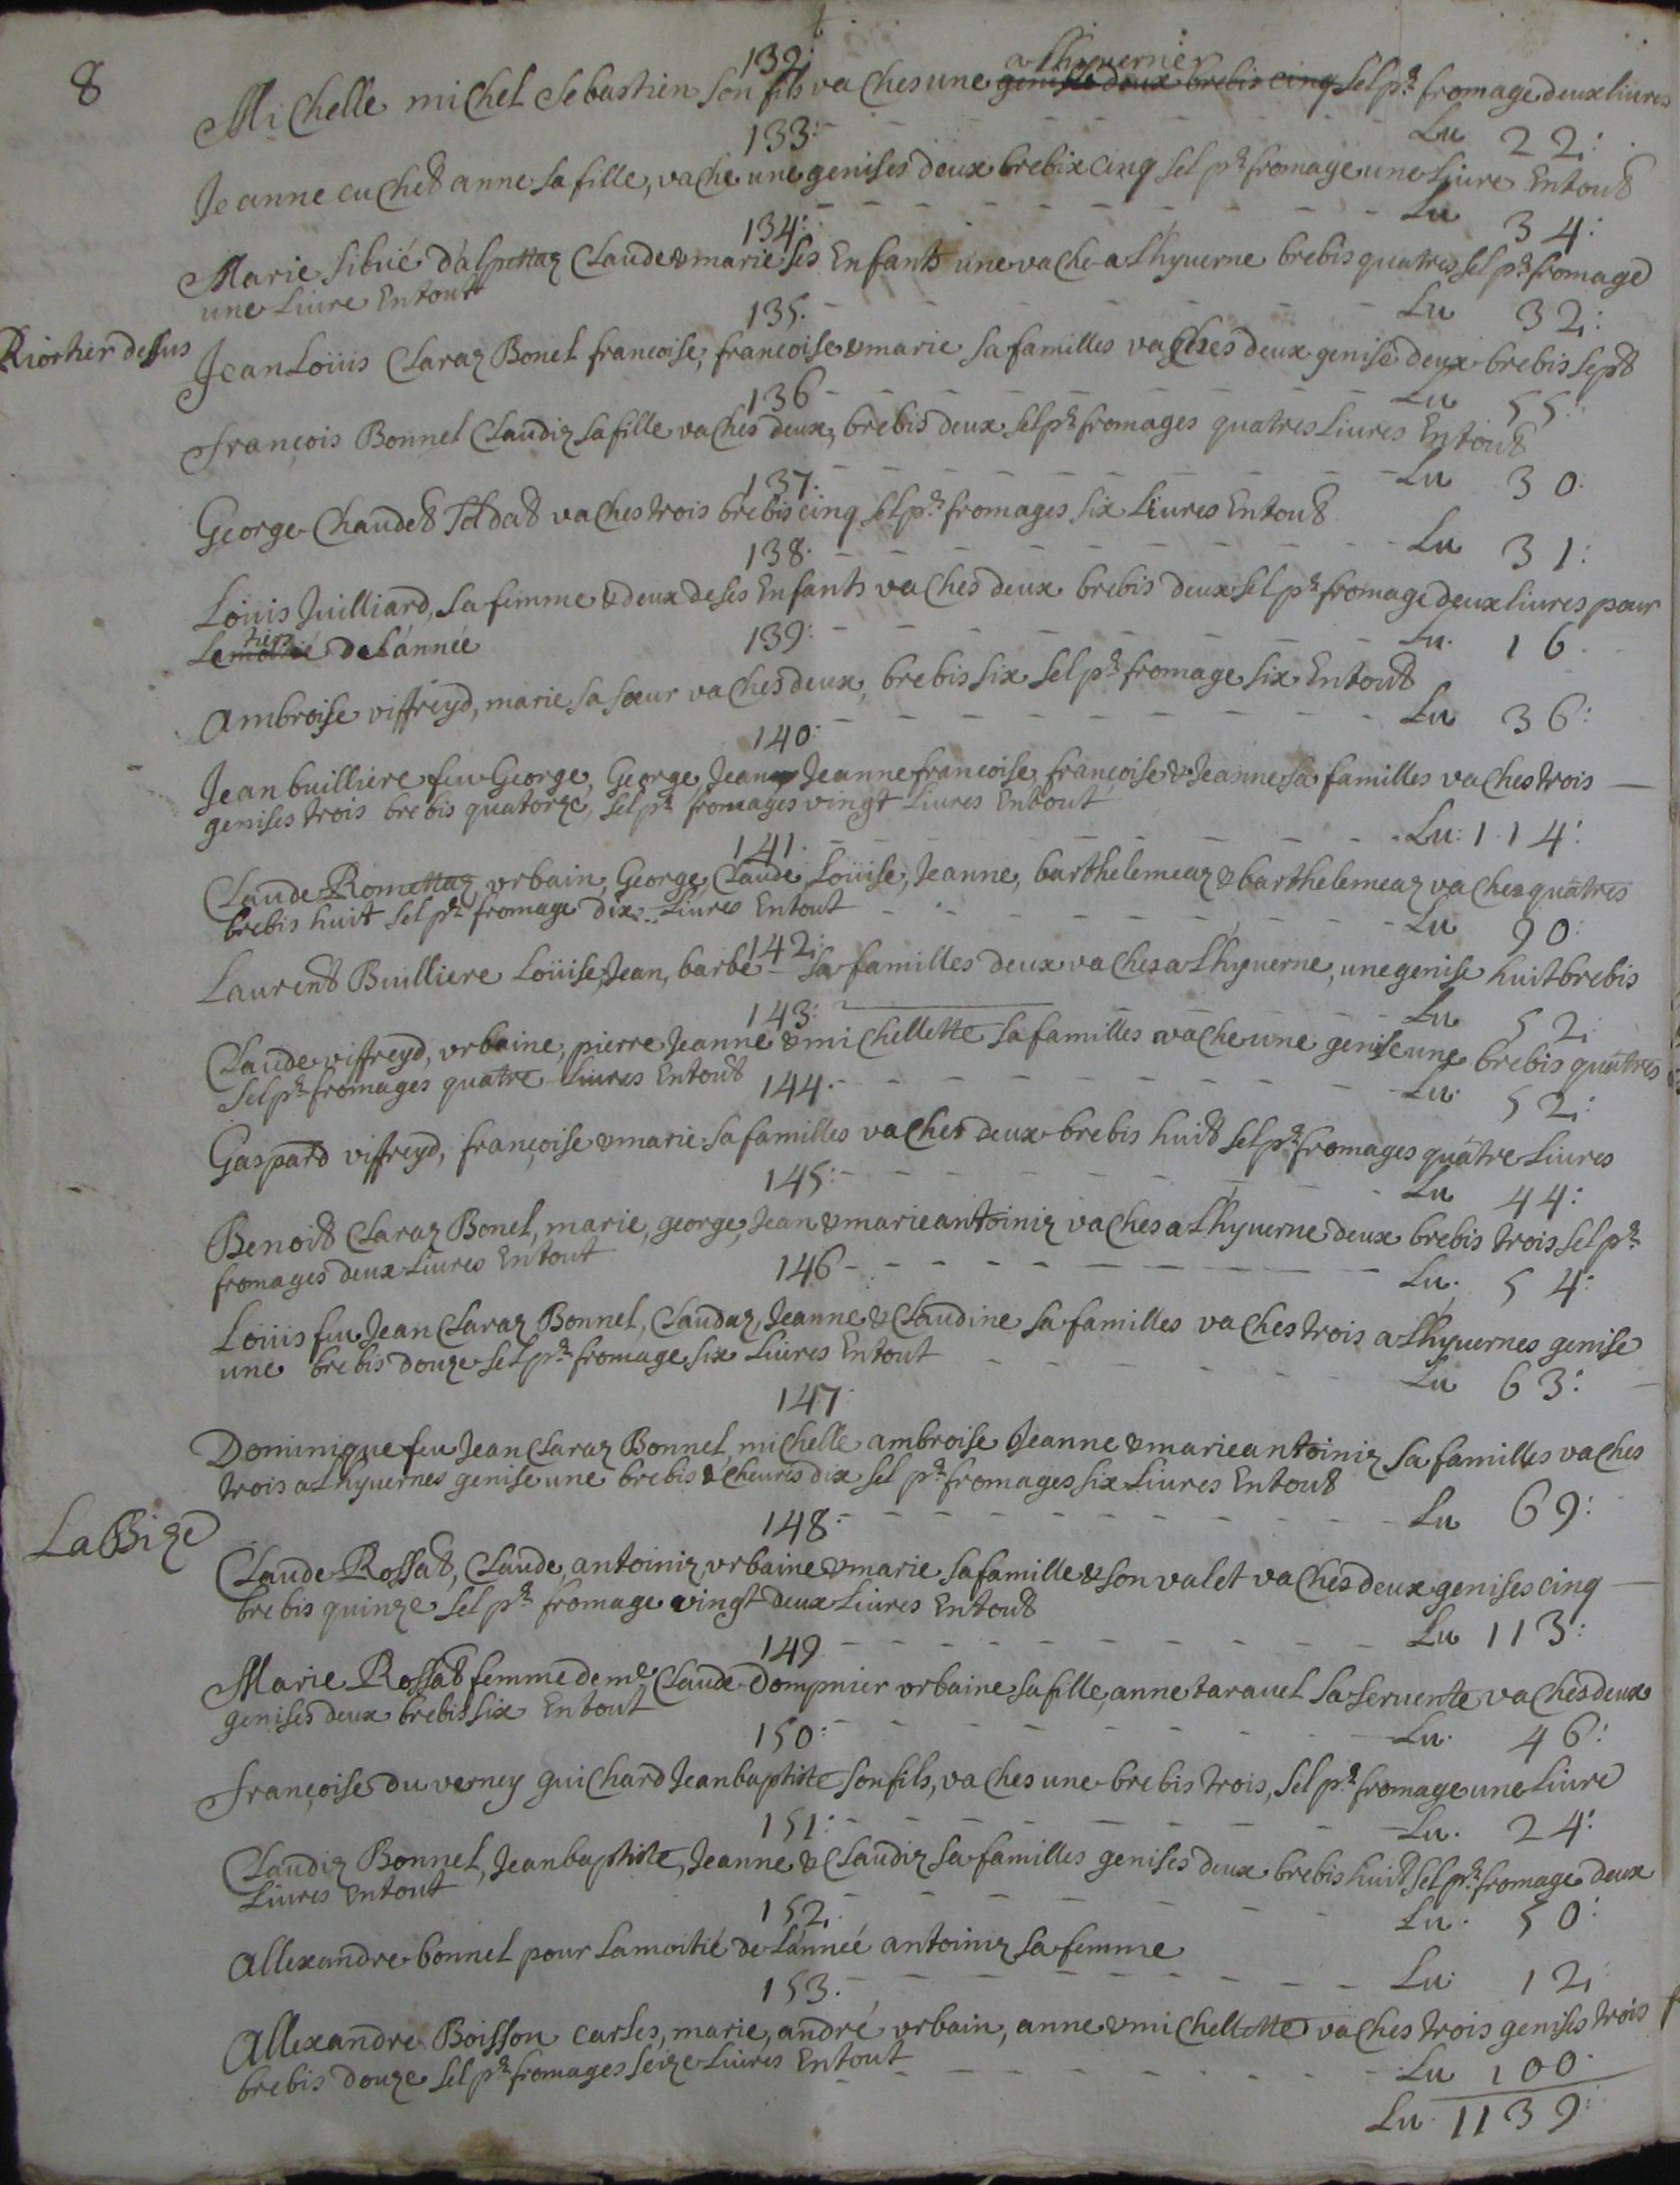 8
132:
a Lhyuerner
Michelle michel Sebastien son fils vaches une genise deux brebis cinq sel pr fromage deux liures
133: Lu 22:
Jeanne cuchet anne sa fille, vache une genises deux brebix cinq sel pr fromage une Liure Entout
134: Lu 34:
Marie sibué d'alpettaz Claude & marie ses Enfants une vache a Lhyuerne brebis quatres sel pr fromage
une Liure Entout
135. Lu 32:
Riortier dessus
Jean Loüis Claraz Bonel francoise, francoise & marie sa familles vaches deux genise deux brebis sept
136 Lu 55:
françois Bonnel Claudiz sa fille vaches deux, brebis deux sel pr fromages quatres Liures Entout
137. Lu 30.
George Chaudet soldat vaches trois brebis cinq sel pr fromages six Liures Entout
138. Lu 31:
Loüis Juilliard, sa femme & deux de ses Enfants vaches deux brebis deux sel pr fromage deux liures pour
tiers
Le moitié de L'année
139: Lu. 16.
Ambroise viffreyd, marie sa sœur vaches deux, brebis six sel pr fromage six Entout
140: Lu 36:
Jean builliere feu George, George, Jean Jeanne francoise, françoise & Jeanne sa familles vaches trois
genises trois brebis quatorze, sel pr fromages vingt Liures Entout
141. Lu: 114:
Claude Romettaz, vrbain, George, Claude, Loüise, Jeanne, barthelemeaz & barthelemeaz vaches quatres
brebis huit sel pr fromage dix Liures Entout
142: Lu 90:
Laurent Builliere Loüise, Jean, barbe sa familles deux vaches a Lhyuerne, une genise huit brebis
143: Lu 52:
Claude viffreyd, vrbaine, pierre Jeanne & michellette sa familles vache une genise une brebis quatres
Sel pr fromages quatre Liures Entout
144. Lu. 52:
Gaspard viffreyd, françoise & marie sa familles vaches deux brebis huit sel pr fromages quatre Liures
145: Lu 44:
Benoit Claraz Bonel, marie, george, Jean & marie antoiniz vaches a Lhyuerne deux brebis trois sel pr
fromages deux Liures Entout
146 Lu. 54:
Loüis feu Jean Claraz Bonnel, Claudaz, Jeanne & Claudine sa familles vaches trois a Lhyuernes genise
une brebis douze sel pr fromage six Liures Entout
147. Lu 63:
Dominique feu Jean Claraz Bonnel, michelle ambroise Jeanne & marie antoiniz sa familles vaches
trois a Lhyuernes genise une brebis & cheures dix sel pr fromages six Liures Entout
148. Lu 69:
La Bize
Claude Rossat, Claude, antoiniz vrbaine & marie sa famille & son valet vaches deux genises cinq
brebis quinze sel pr fromage vingt deux Liures Entout
149 Lu 113:
Marie Rossat femme de me Claude Dompnier vrbaine sa fille, anne tarauel sa seruente vaches deux
genises deux brebis six Entout
150: Lu. 46:
françoise du verney guichard Jean baptiste son fils, vaches une brebis trois, sel pr fromage une Liure
151: Lu. 24:
Claudiz Bonnel, Jean baptiste, Jeanne & Claudiz sa familles genises deux brebis huit sel pr fromage deux
Liures Entout
152. Lu. 50:
Allexandre bonnel pour La moitié de L'année antoiniz sa femme
153. Lu. 12
Allexandre Boisson carles, marie, andré vrbain, anne & michellette vaches trois genises trois
brebis douze sel pr fromages seize Liures Entout
Lu 100.
Lu. 1139: